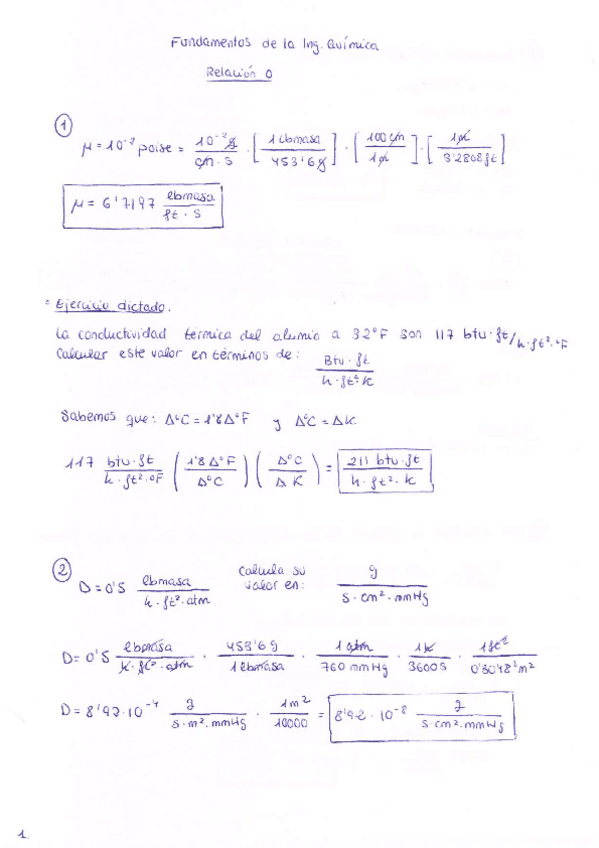 Fundamentos de la Ing. Química
Relación 0
① μ = 10⁻² poise = 10⁻² g / cm · s · [1 lbmasa / 453'6 g] · [100 cm / 1 m] · [1 m / 3'2808 ft]
μ = 6'7197 lbmasa / ft · s
Ejercicio dictado.
La conductividad térmica del alumio a 32°F son 117 btu·ft/h·ft²·°F
Calcular este valor en términos de: Btu · ft / h · ft² K
Sabemos que: Δ°C = 1'8 Δ°F y Δ°C = ΔK
117 btu·ft / h·ft²·°F (1'8 Δ°F / Δ°C) (Δ°C / ΔK) = 211 btu·ft / h·ft²·K
② D = 0'5 lbmasa / h·ft²·atm calcula su valor en: g / s·cm²·mmHg
D = 0'5 lbmasa / h·ft²·atm · 453'6 g / 1 lbmasa · 1 atm / 760 mmHg · 1 h / 3600 s · 1 ft² / 0'3048² m²
D = 8'92·10⁻⁴ g / s·m²·mmHg · 1 m² / 10000 = 8'92·10⁻⁸ g / s·cm²·mmHg
1.